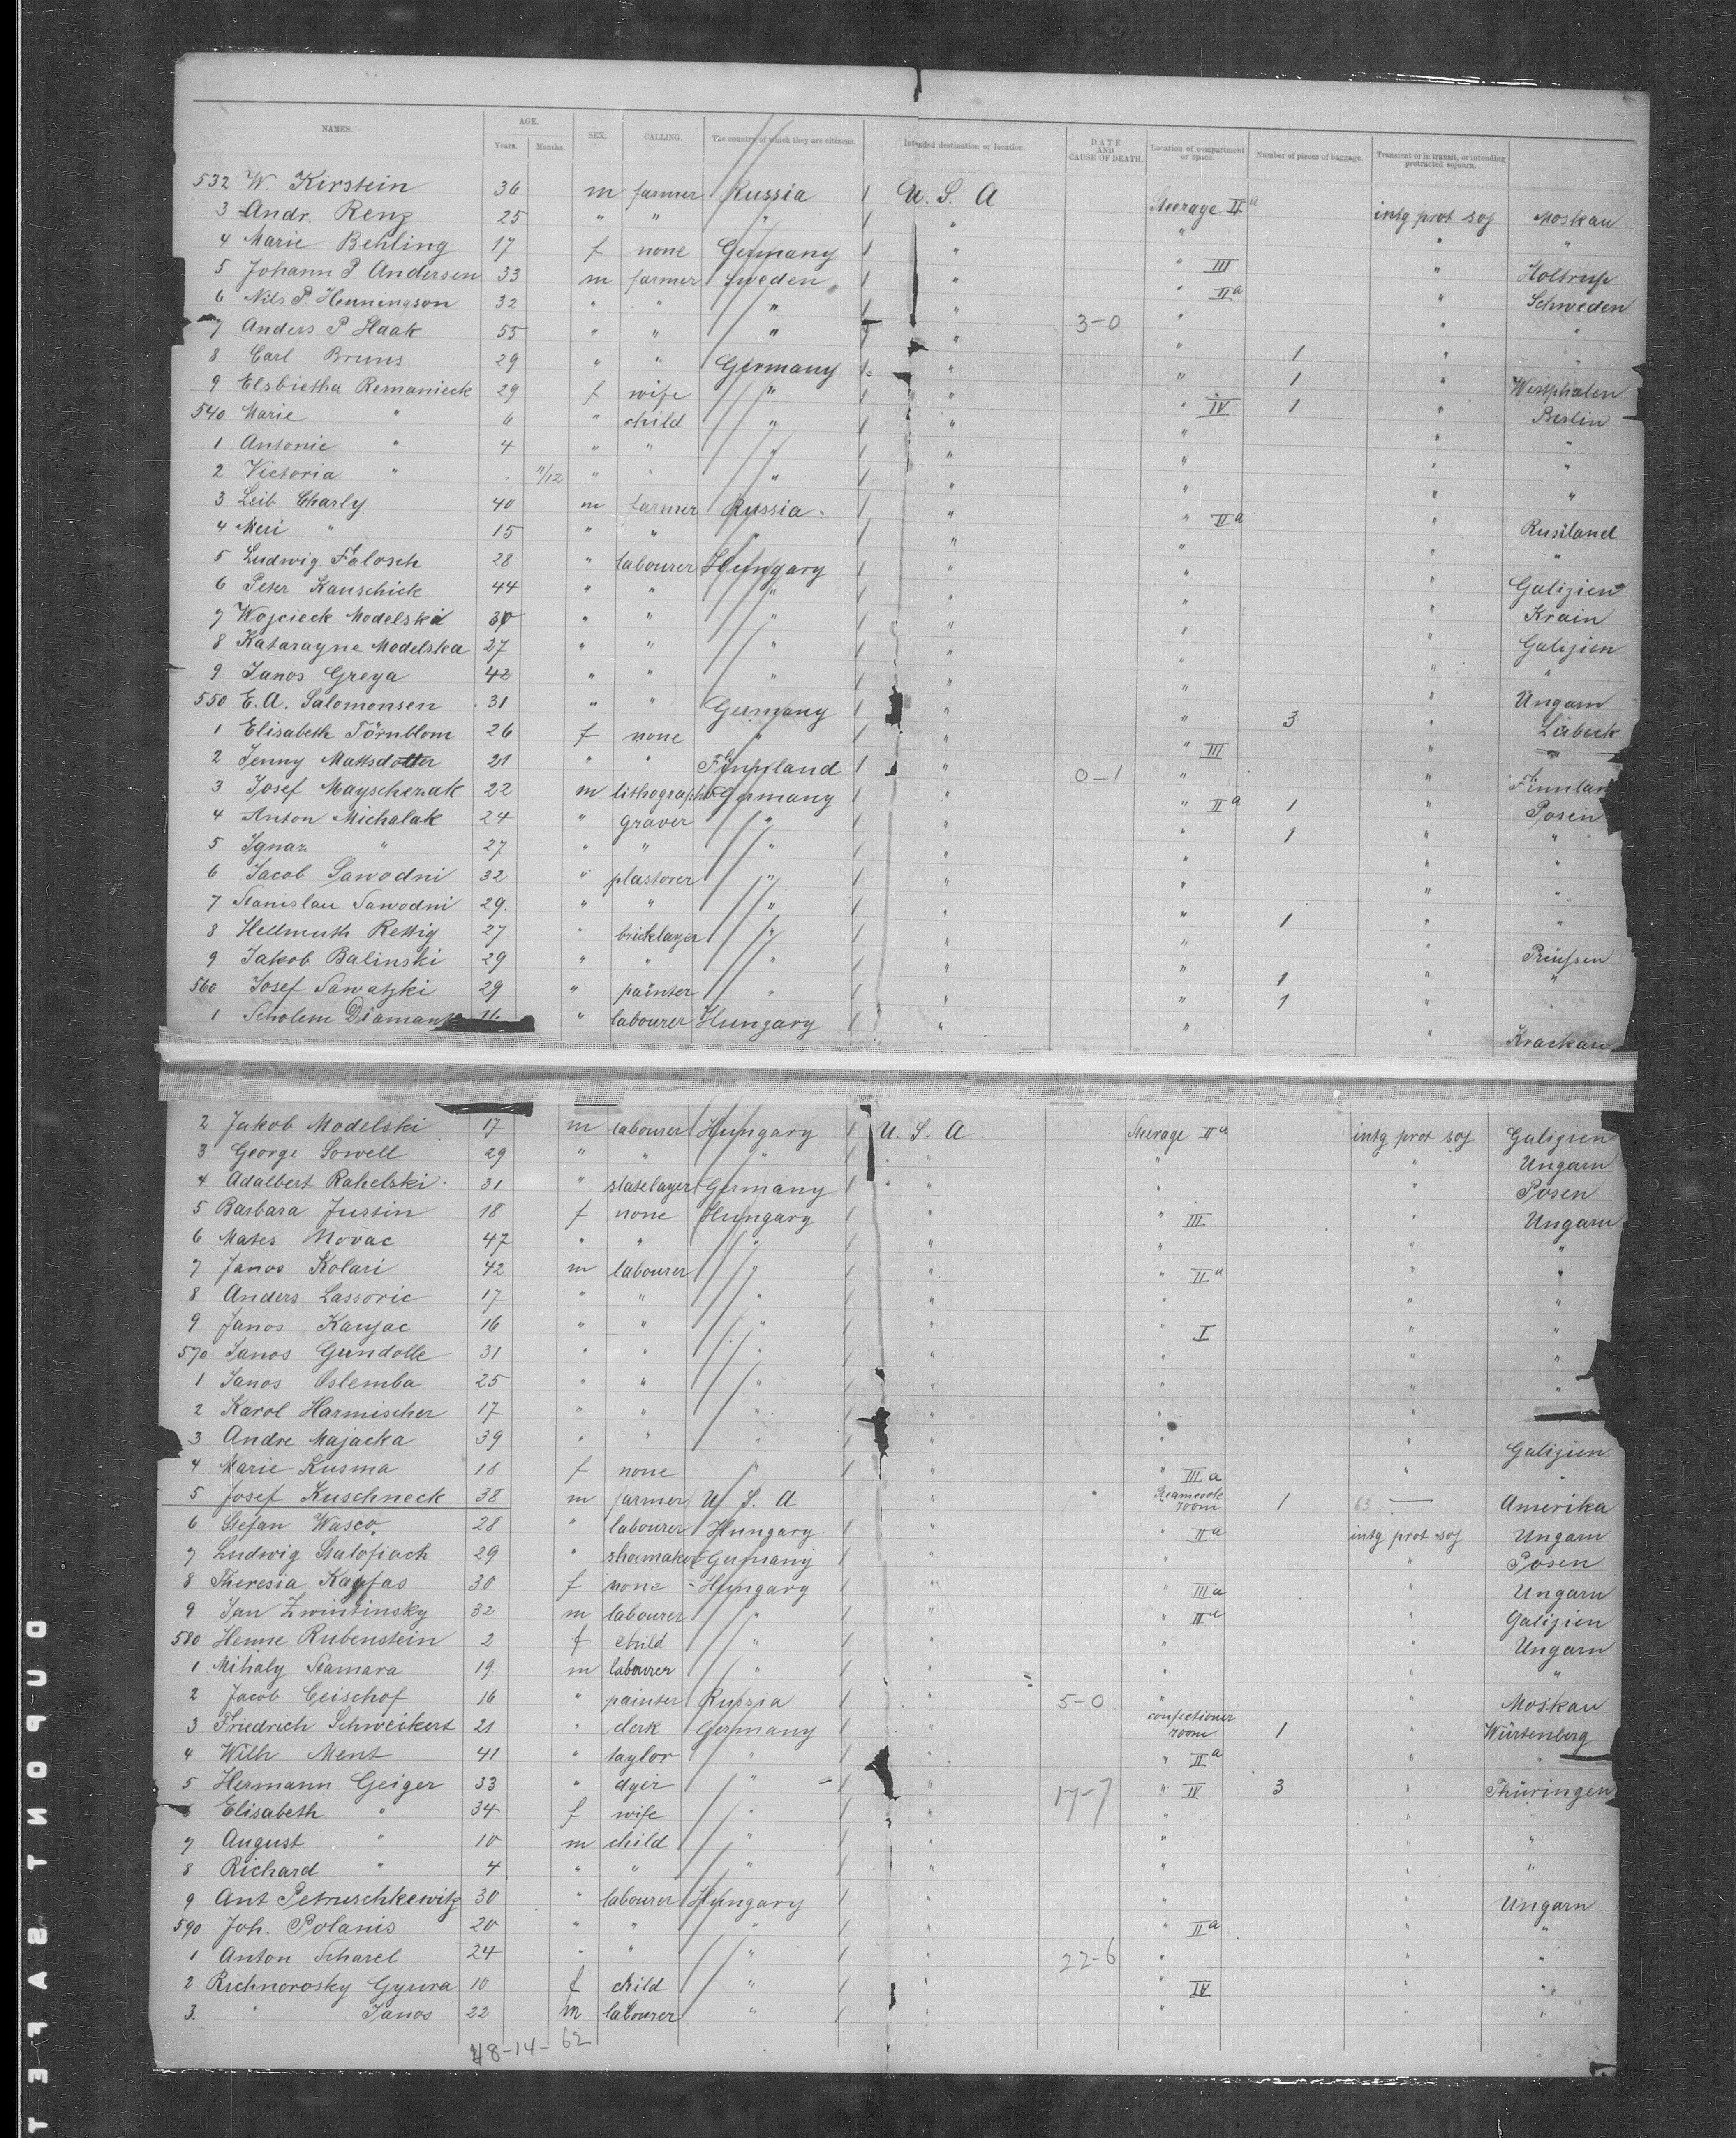 NAMES. AGE. SEX. CALLING. The country of which they are citizens. Intended destination or location. DATE AND CAUSE OF DEATH. Location of compartment or space. Number of pieces of baggage. Transient or in transit, or intending protracted sojourn.
Years. Months.
532 W. Kirstein 36 m farmer Russia 1 U. S. A Steerage IIa intg prot soj Moskau
3 Andr. Renz 25 " " " 1 " " " "
4 Marie Behling 17 f none Germany 1 " " III " Holtrup
5 Johann P Andersen 33 m farmer Sweden 1 " " IIa " Schweden
6 Nils P. Henningson 32 " " " 1 " " " "
7 Anders P Haak 55 " " " 1 " 3-0 " "
8 Carl Bruns 29 " " Germany 1 " " 1 " Westphalen
9 Elsbietha Remanieck 29 f wife " 1 " " IV 1 " Berlin
540 Marie " 6 " child " 1 " " " "
1 Antonie " 4 " " " 1 " " " "
2 Victoria " 11/12 " " " 1 " " " "
3 Leib Charly 40 m farmer Russia 1 " " IIa " Russland
4 Meri " 15 " " " 1 " " " "
5 Ludwig Falosch 28 " labourer Hungary 1 " " " Galizien
6 Peter Kauschick 44 " " " 1 " " " Krain
7 Wojcieck Modelski 30 " " " 1 " " " Galizien
8 Katarayne Modelska 27 " " " 1 " " " "
9 Janos Greya 42 " " " 1 " " " Ungarn
550 E. A. Salomonsen 31 " " Germany 1 " " 3 " Lübeck
1 Elisabeth Törnblom 26 f none " 1 " " III " "
2 Jenny Mattsdotter 21 " " Finnland 1 " 0-1 " " Finnlan
3 Josef Mayscherak 22 m lithograph Germany 1 " " IIa 1 " Posen
4 Anton Michalak 24 " graver " 1 " " 1 " "
5 Ignaz " 27 " " " 1 " " " "
6 Jacob Sawodni 32 " plastorer " 1 " " " "
7 Stanislau Sawodni 29. " " " 1 " " 1 " "
8 Hellmuth Rettig 27 " bricklayer " 1 " " " Preußen
9 Jakob Balinski 29 " " " 1 " " 1 " "
560 Josef Sawatzki 29 " painter " 1 " " 1 " "
1 Scholem Diamant " labourer Hungary 1 " " " Krackau
2 Jakob Modelski 17 m labourer Hungary 1 U. S. A. Steerage IIa intg prot soj Galizien
3 George Sowell 29 " " " 1 " " " Ungarn
4 Adalbert Rahelski 31 " slatelayer Germany 1 " " " Posen
5 Barbara Justin 18 f none Hungary 1 " " III " Ungarn
6 Mates Novac 47 " " " 1 " " " "
7 Janos Kolari 42 m labourer " 1 " " IIa " "
8 Anders Lassoric 17 " " " 1 " " " "
9 Janos Kanjac 16 " " " 1 " " I " "
570 Janos Gundolle 31 " " " 1 " " " "
1 Janos Oslemba 25 " " " 1 " " " "
2 Karol Harmischer 17 " " " 1 " " "
3 Andre Majacka 39 " " " 1 " " " Galizien
4 Marie Kusma 18 f none " 1 " " IIIa " "
5 Josef Kuschneck 38 m farmer U S. A " Steamcook room 1 63 — Amerika
6 Stefan Wasco 28 " labourer Hungary 1 " " IIa intg prot soj Ungarn
7 Ludwig Stalofiach 29 " shoemaker Germany 1 " " " Posen
8 Theresia Kayfas 30 f none Hungary 1 " " IIIa " Ungarn
9 Jan Zwintinsky 32 m labourer " 1 " " IIa " Galizien
580 Henne Rubenstein 2 f child " 1 " " " Ungarn
1 Mihaly Stamara 19 m labourer " 1 " " " "
2 Jacob Ceischof 16 " painter Russia 1 " 5-0 " " Moskau
3 Friedrich Schweikert 21 " clerk Germany 1 " confectioner room 1 " Würtenberg
4 Wilh Ment 41 " taylor " 1 " " IIa " "
5 Hermann Geiger 33 " dyer " " 17-7 " IV 3 " Thüringen
Elisabeth " 34 f wife " 1 " " " "
7 August " 10 m child " 1 " " " "
8 Richard " 4 " " " 1 " " " "
9 Ant Petruschkewitz 30 " labourer Hungary 1 " " " Ungarn
590 Joh. Polanis 20 " " " 1 " " IIa " "
1 Anton Scharel 24 " " " 1 " 22-6 " " "
2 Richnorosky Gyura 10 f child " 1 " " IV " "
3. " Janos 22 m labourer " 1 " " " "
48-14- 62